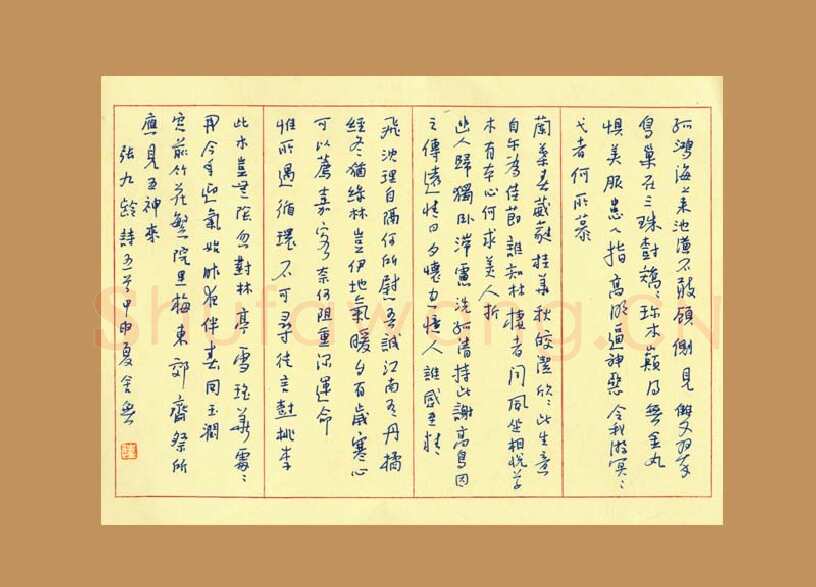 孤鴻海上來池潢不敢顧側見雙翠
鳥巢在三珠樹矯〻珍木巔得無金丸
懼美服患人指高明逼神惡今我游冥〻
弋者何所慕
蘭葉春葳蕤桂華秋皎潔欣〻此生意
自尔為佳節誰知林棲者聞風坐相悅草
木有本心何求美人折
幽人歸獨卧滯慮洗孤清持此謝高鳥因
之傳遠情日夕懷人誰感至精
飛沈理自隔何所慰吾誠江南有丹橘
經冬猶綠林豈伊地氣暖自有歲寒心
可以薦嘉客奈何阻重深運命
惟所遇循環不可尋徒言樹桃李
此木豈無陰忽對林亭雪瑤華處〻
開今年迎氣始昨夜伴春回玉潤
窗前竹花繁院里梅東郊齋祭所
應見五神來
張九齡詩五首甲申夏
Shufawang.CN